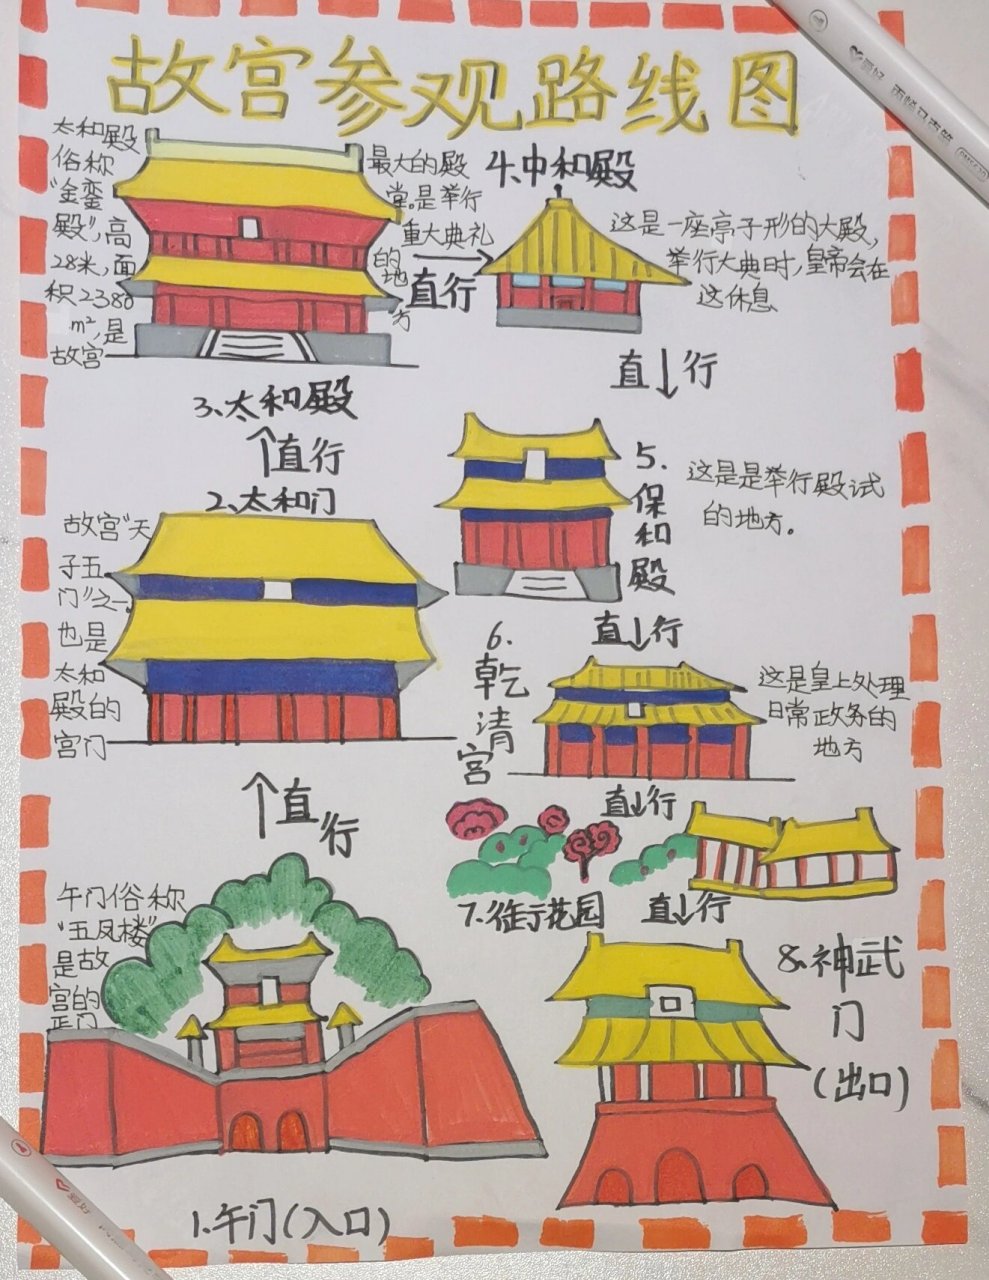 故宫参观路线图
太和殿
俗称
“金銮
殿”,高
28米,面
积2380
m²,是
故宫
最大的殿
堂。是举行
重大典礼
的地
方
3、太和殿
直行
4、中和殿
这是一座亭子形的大殿,
举行大典时,皇帝会在
这休息
直行
5.保和殿
这是是举行殿试
的地方。
直行
6.乾清宫
这是皇上处理
日常政务的
地方
直行
7.御花园
直行
8、神武门
(出口)
直行
2、太和门
故宫“天
子五
门”之一,
也是
太和
殿的
宫门
直行
午门俗称
“五凤楼”
是故
宫的
正门
1、午门(入口)